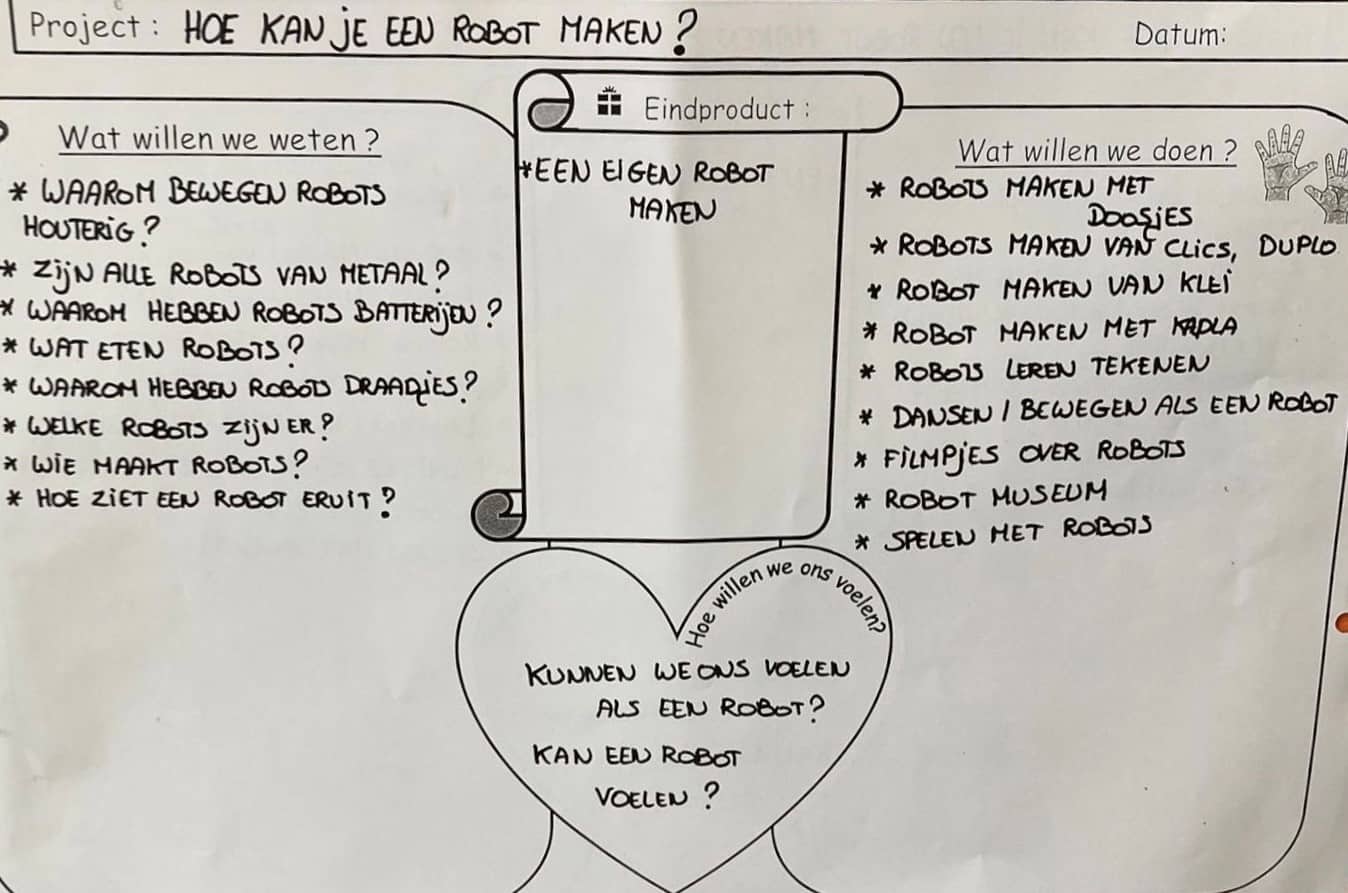 Project: HOE KAN JE EEN ROBOT MAKEN?
Datum:
Wat willen we weten?
* WAAROM BEWEGEN ROBOTS
HOUTERIG?
* ZIJN ALLE ROBOTS VAN METAAL?
* WAAROM HEBBEN ROBOTS BATTERIJEN?
* WAT ETEN ROBOTS?
* WAAROM HEBBEN ROBOTS DRAADJES?
* WELKE ROBOTS ZIJN ER?
* WIE MAAKT ROBOTS?
* HOE ZIET EEN ROBOT ERUIT?
Eindproduct:
*EEN EIGEN ROBOT
MAKEN
Wat willen we doen?
* ROBOTS MAKEN MET
DOOSJES
* ROBOTS MAKEN VAN CLICS, DUPLO
* ROBOT MAKEN VAN KLEI
* ROBOT MAKEN MET KAPLA
* ROBOTS LEREN TEKENEN
* DANSEN / BEWEGEN ALS EEN ROBOT
* FILMPJES OVER ROBOTS
* ROBOT MUSEUM
* SPELEN MET ROBOTS
Hoe willen we ons voelen?
KUNNEN WE ONS VOELEN
ALS EEN ROBOT?
KAN EEN ROBOT
VOELEN?